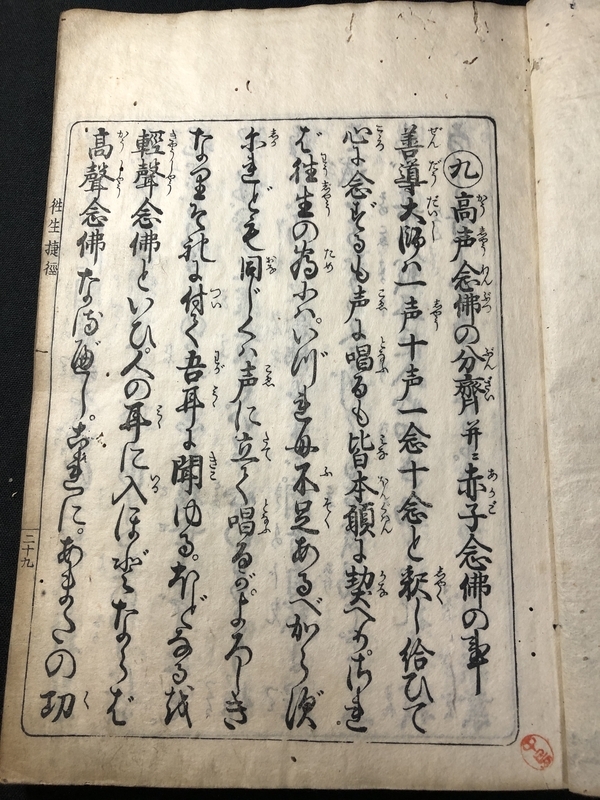 九 高声念佛の分齊并ニ赤子念佛の事
善導大師ハ一声十声一念十念と釈し給ひて
心に念ずるも声に唱るも皆本願に契へり。され
ば往生の為にハいづれも不足あるべからず
尓れども同じくハ声に立て唱るが。よろしき
なりそれに付て吾耳に聞ゆる。ほどなるを
輕聲念佛といひ。人の耳に入ほどならば
高聲念佛なるべし。これに。あまたの功
往生捷徑
二十九